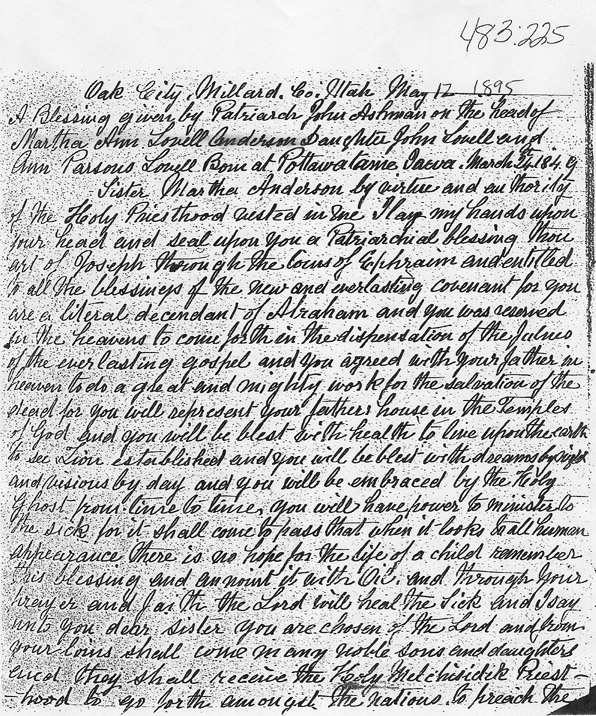 483:225
Oak City, Millard. Co. Utah May 12 1895
A Blessing given by Patriarch John Ashman on the head of
Martha Ann Lovell Anderson Daughter John Lovell and
Ann Parsons Lovell Born at Pottawatame Iaowa. March 24 184 9
Sister Martha Anderson by virtue and authority
of the Holy Priesthood vested in me I lay my hands upon
your head and seal upon you a Patriarchial blessing thou
art of Joseph through the loins of Ephraim and entitled
to all the blessings of the new and everlasting covenant for you
are a literal decendant of Abraham and you was reserved
in the heavens to come forth in the dispensation of the fulnes
of the everlasting gospel and you agreed with your father in
heaven to do a great and mighty work for the salvation of the
dead for you will represent your fathers house in the Temples
of God and you will be blest with health to live upon the earth
to see Zion established and you will be blest with dreams by night
and visions by day and you will be embraced by the Holy
Ghost from time to time, you will have power to minister to
the sick for it shall come to pass that when it looks to all human
appearance there is no hope for the life of a child remember
this blessing and annoint it with Oil. and through your
prayer and faith the Lord will heal the Sick and I say
unto you dear sister you are chosen of the Lord and from
your loins shall come many noble sons and daughters
and they shall receive the Holy Melchisidik Priest-
-hood to go forth amongst the nations to preach the